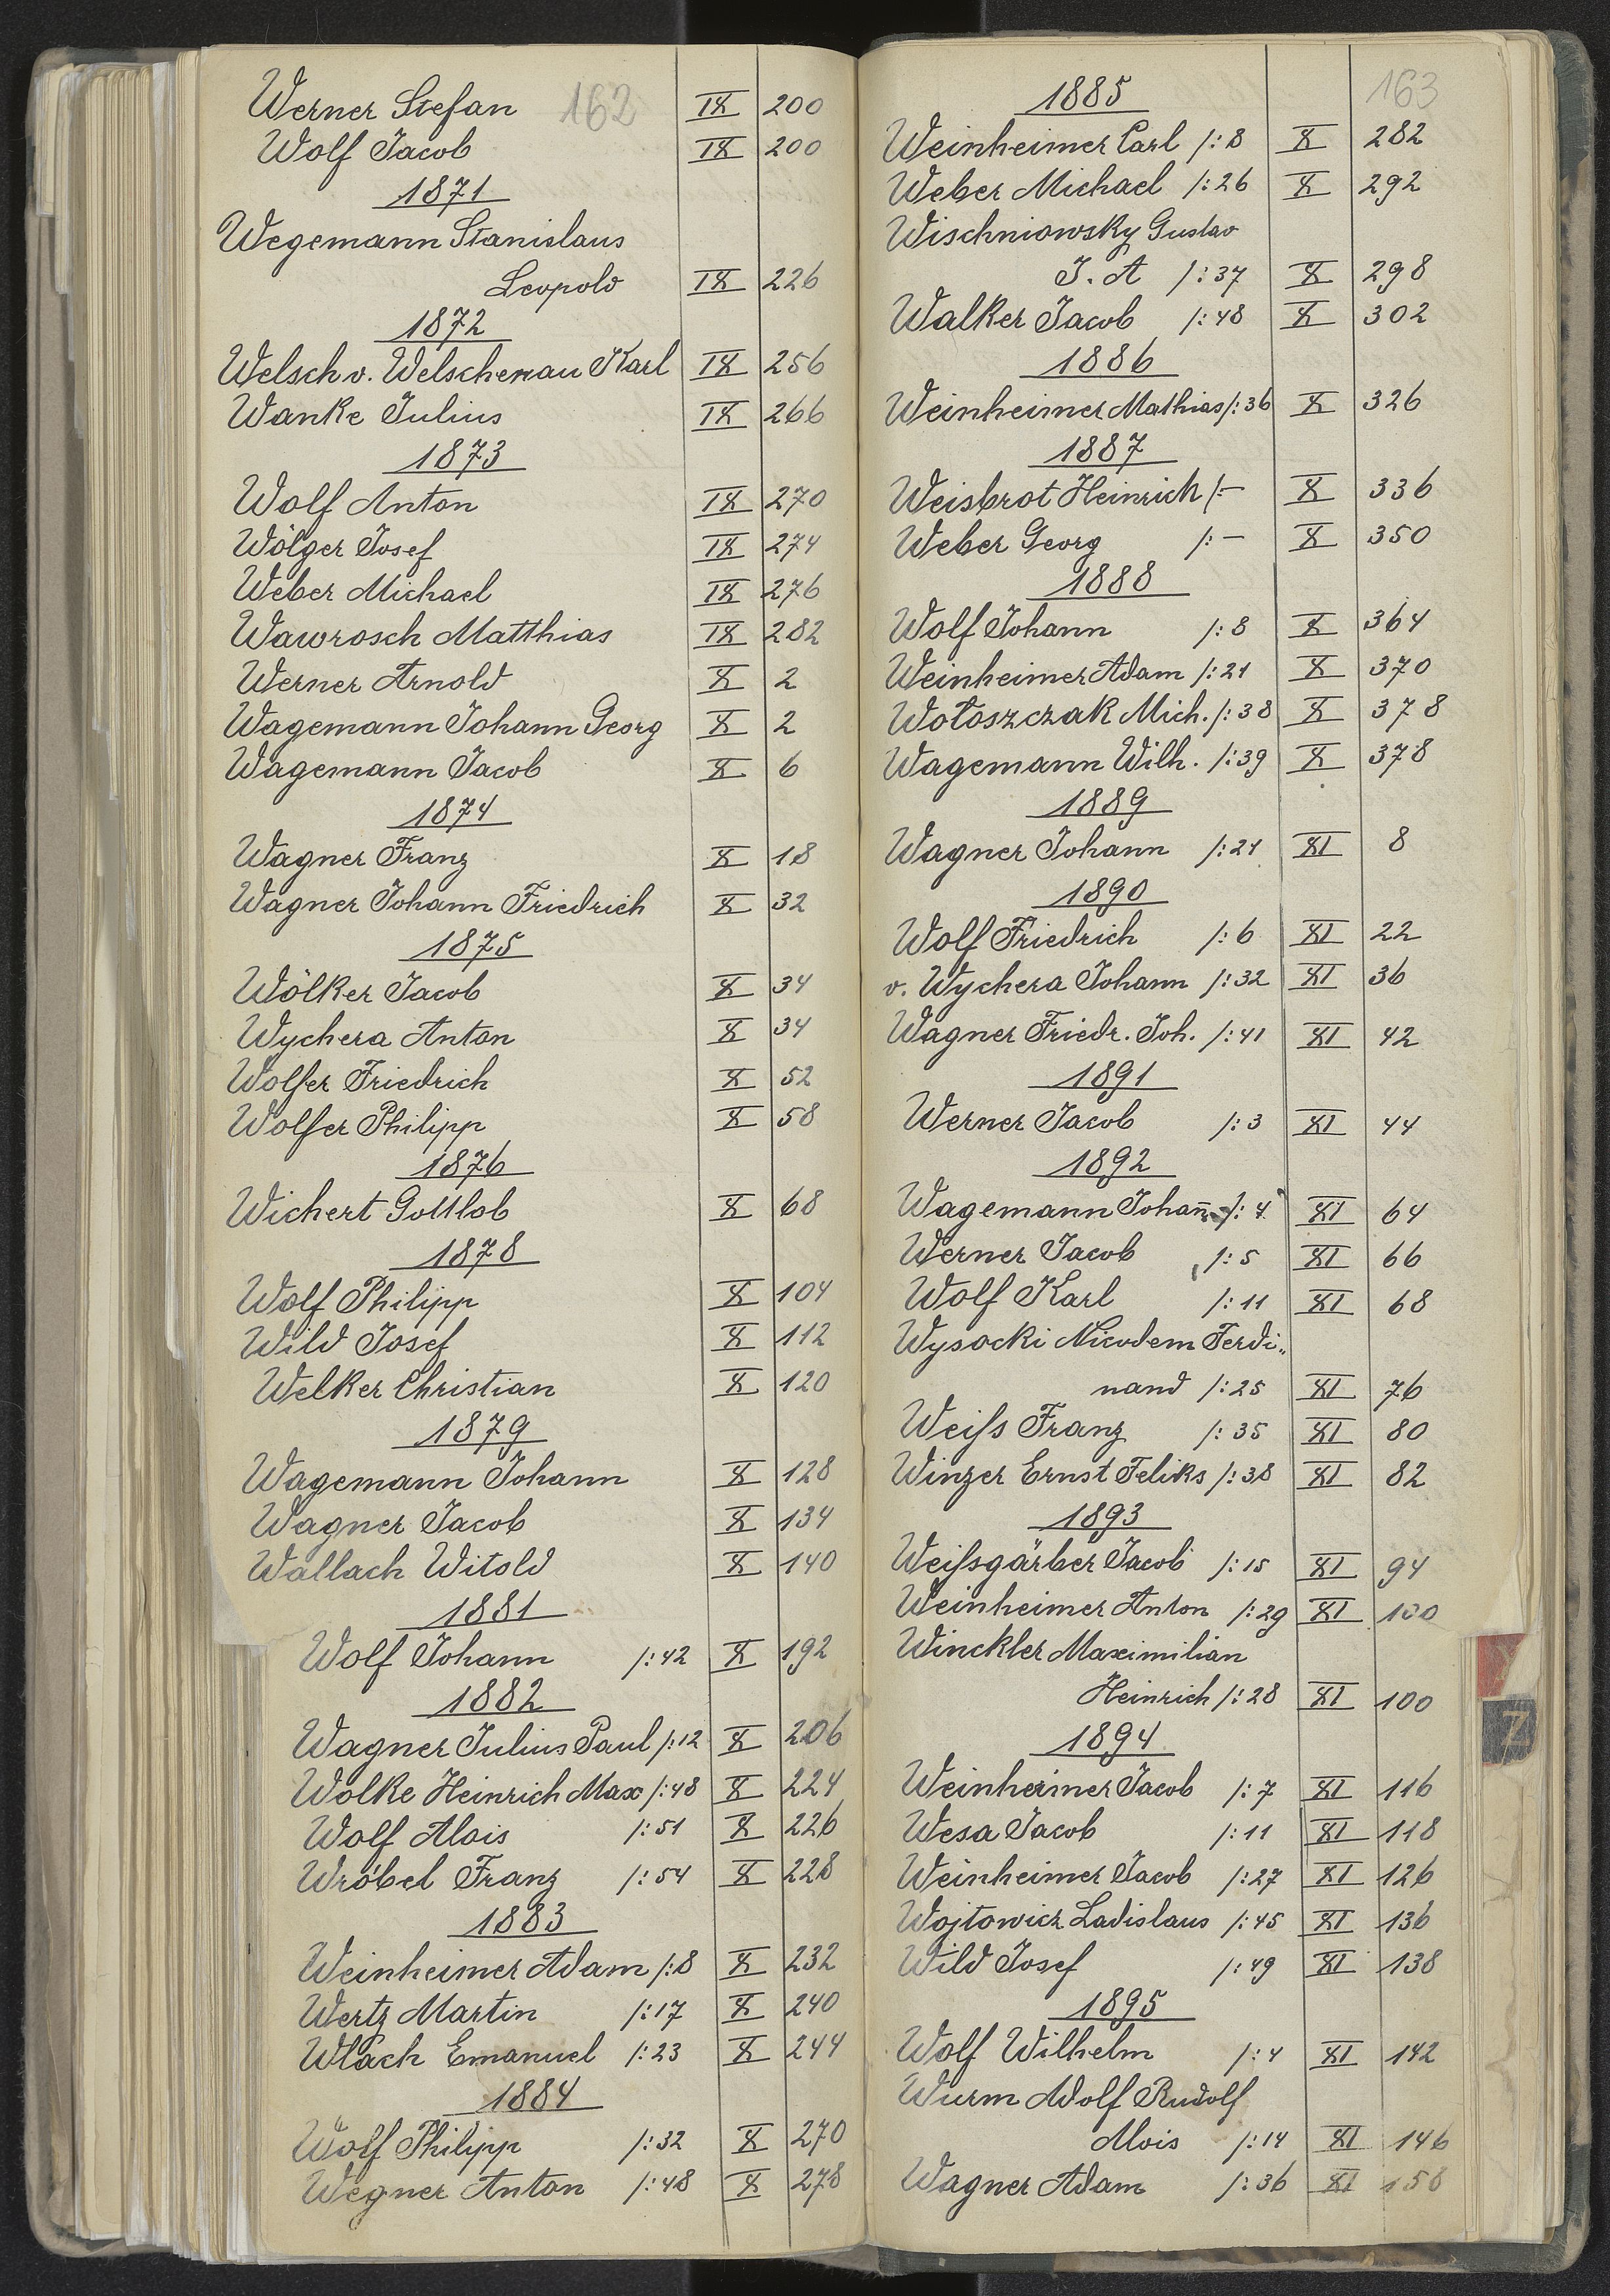 162
Werner Stefan IX 200
Wolf Jacob IX 200
1871
Wegemann Stanislaus
Leopold IX 226
1872
Welsch v. Welschenau Karl IX 256
Wanke Julius IX 266
1873
Wolf Anton IX 270
Wölger Josef IX 274
Weber Michael IX 276
Wawrosch Matthias IX 282
Werner Arnold X 2
Wagemann Johann Georg X 2
Wagemann Jacob X 6
1874
Wagner Franz X 18
Wagner Johann Friedrich X 32
1875
Wölker Jacob X 34
Wychera Anton X 34
Wolfer Friedrich X 52
Wolfer Philipp X 58
1876
Wichert Gottlob X 68
1878
Wolf Philipp X 104
Wild Josef X 112
Welker Christian X 120
1879
Wagemann Johann X 128
Wagner Jacob X 134
Wallach Witold X 140
1881
Wolf Johann /:42 X 192
1882
Wagner Julius Paul /:12 X 206
Wolke Heinrich Max /:48 X 224
Wolf Alois /:51 X 226
Wróbel Franz /:54 X 228
1883
Weinheimer Adam /:8 X 232
Wertz Martin /:17 X 240
Wlach Emanuel /:23 X 244
1884
Wolf Philipp /:32 X 270
Wegner Anton /:48 X 278
163
1885
Weinheimer Carl /:8 X 282
Weber Michael /:26 X 292
Wischniowsky Gustav
J. A /:37 X 298
Walker Jacob /:48 X 302
1886
Weinheimer Mathias /:36 X 326
1887
Weisbrot Heinrich /:— X 336
Weber Georg /:— X 350
1888
Wolf Johann /:8 X 364
Weinheimer Adam /:21 X 370
Wołoszczak Mich. /:38 X 378
Wagemann Wilh. /:39 X 378
1889
Wagner Johann /:21 XI 8
1890
Wolf Friedrich /:6 XI 22
v. Wychera Johann /:32 XI 36
Wagner Friedr. Joh. /:41 XI 42
1891
Werner Jacob /:3 XI 44
1892
Wagemann Johan̄ /:4 XI 64
Werner Jacob /:5 XI 66
Wolf Karl /:11 XI 68
Wysocki Nicodem Ferdi„
nand /:25 XI 76
Weiſs Franz /:35 XI 80
Winzer Ernst Feliks /:38 XI 82
1893
Weiſsgärber Jacob /:15 XI 94
Weinheimer Anton /:29 XI 100
Winckler Maximilian
Heinrich /:28 XI 100
1894
Weinheimer Jacob /:7 XI 116
Wesa Jacob /:11 XI 118
Weinheimer Jacob /:27 XI 126
Wojtowicz Ladislaus /:45 XI 136
Wild Josef /:49 XI 138
1895
Wolf Wilhelm /:4 XI 142
Wurm Adolf Rudolf
Alois /:14 XI 146
Wagner Adam /:36 XI 158
Z